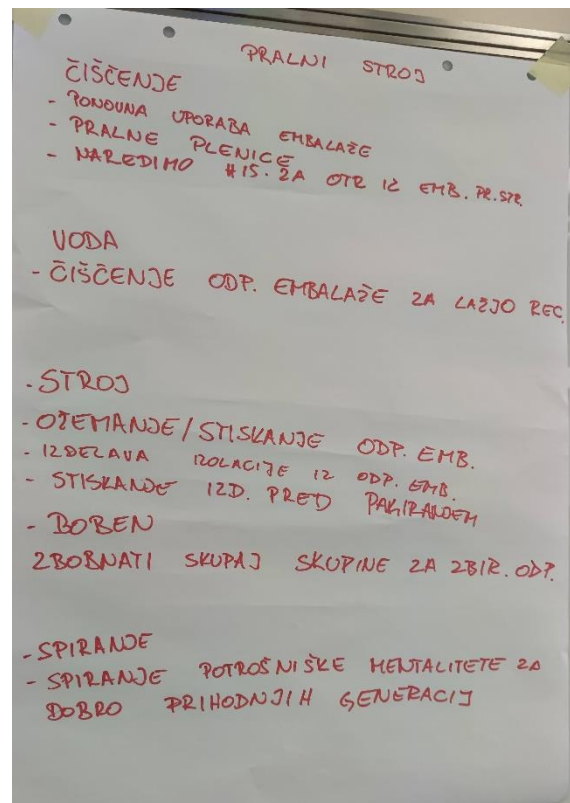 PRALNI STROJ
ČIŠČENJE
- PONOVNA UPORABA EMBALAŽE
- PRALNE PLENICE
- NAREDIMO HIŠ. ZA OTR IZ EMB. PR. STR.
VODA
- ČIŠČENJE ODP. EMBALAŽE ZA LAŽJO REC.
- STROJ
- OŽEMANJE/STISKANJE ODP. EMB.
- IZDELAVA IZOLACIJE IZ ODP. EMB.
- STISKANJE IZD. PRED PAKIRANJEM
- BOBEN
ZBOBNATI SKUPAJ SKUPINE ZA ZBIR. ODP.
- SPIRANJE
- SPIRANJE POTROŠNIŠKE MENTALITETE ZA
DOBRO PRIHODNJIH GENERACIJ